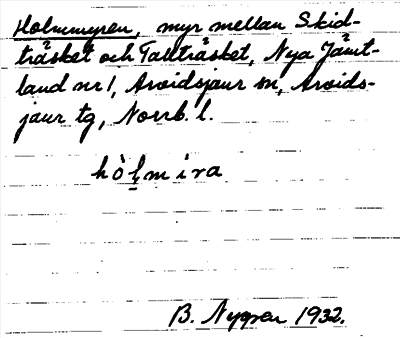 Holmmyren, myr mellan Skid-
träsket och Tallträsket, Nya Jämt-
land nr 1, Arvidsjaur sn, Arvids-
jaur tg, Norrb. l.
hòl̥mira
B. Nygren 1932.